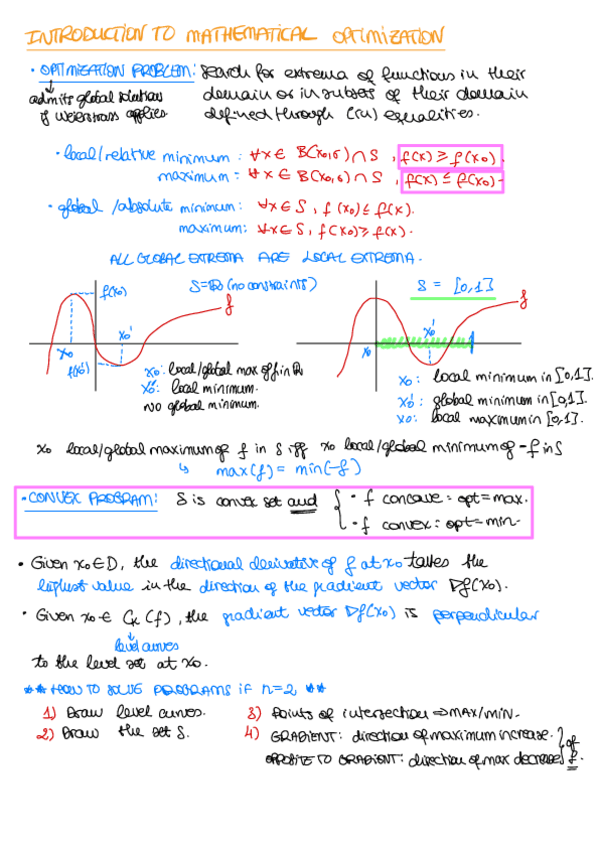 INTRODUCTION TO MATHEMATICAL OPTIMIZATION
• OPTIMIZATION PROBLEM: search for extrema of functions in their
admits global solutions domain or in subsets of their domain
if Weierstrass applies defined through (in) equalities.
• local/relative minimum : ∀x ∈ B(x₀,δ) ∩ S , f(x) ≥ f(x₀).
maximum: ∀x ∈ B(x₀,δ) ∩ S , f(x) ≤ f(x₀).
• global /absolute minimum: ∀x ∈ S , f(x₀) ≤ f(x).
maximum: ∀x ∈ S , f(x₀) ≥ f(x).
ALL GLOBAL EXTREMA ARE LOCAL EXTREMA.
f(x₀) S=ℝ (no constraints) f
S = [0,1] f
x₀ x₀' f(x₀')
x₀ x₀' 1
x₀: local/global max of f in ℝ
x₀': local minimum.
NO global minimum.
x₀ : local minimum in [0,1].
x₀' : global minimum in [0,1].
x₀: local maximum in [0,1].
x₀ local/global maximum of f in S iff x₀ local/global minimum of -f in S
↳ max(f) = min(-f)
• CONVEX PROGRAM: S is convex set and { • f concave : opt = max.
• f convex : opt = min.
• Given x₀ ∈ D, the directional derivative of f at x₀ takes the
highest value in the direction of the gradient vector ∇f(x₀).
• Given x₀ ∈ Cₖ(f), the gradient vector ∇f(x₀) is perpendicular
level curves
to the level set at x₀.
** HOW TO SOLVE PROGRAMS if n=2 **
1) Draw level curves. 3) Points of intersection ⇒ MAX/MIN.
2) Draw the set S. 4) GRADIENT: direction of maximum increase. } of
OPPOSITE TO GRADIENT: direction of max decrease } f.